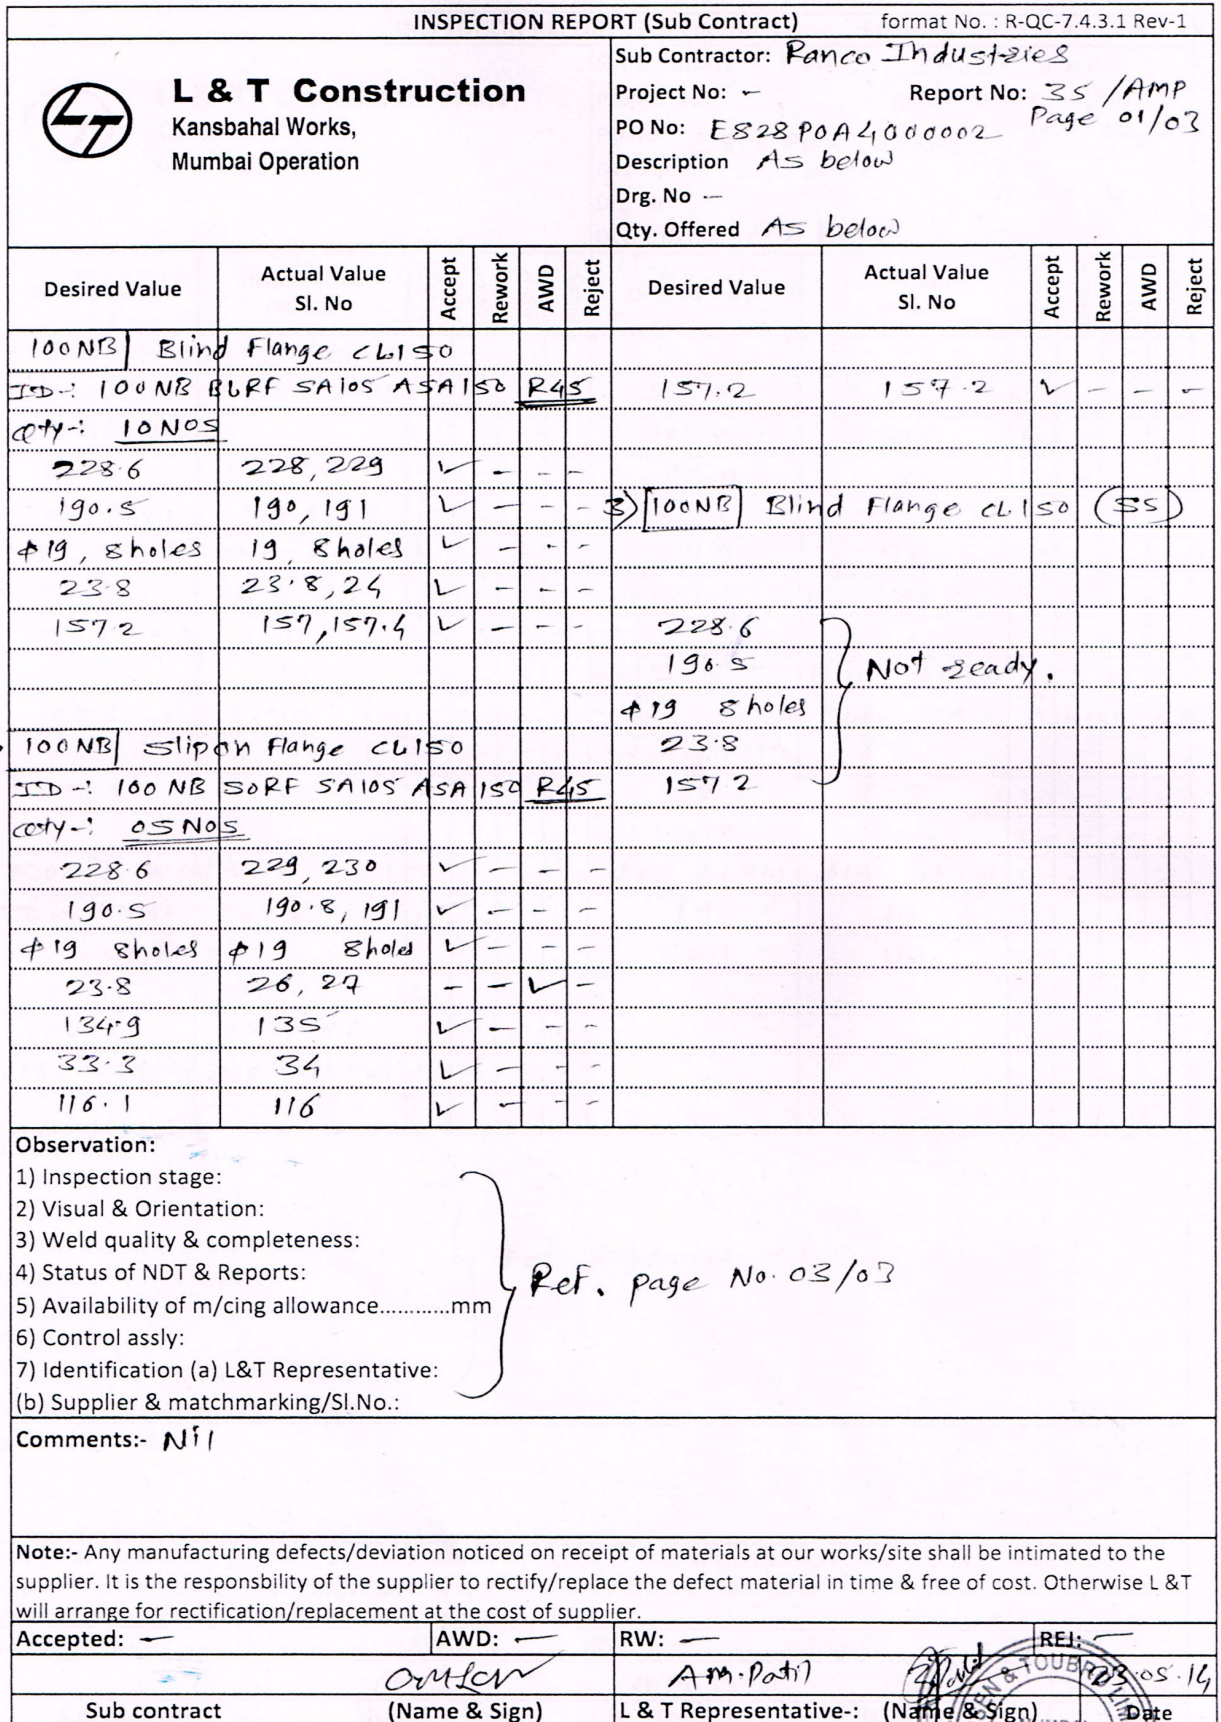 INSPECTION REPORT (Sub Contract) format No. : R-QC-7.4.3.1 Rev-1
L & T Construction
Kansbahal Works,
Mumbai Operation
Sub Contractor: Ranco Industries
Project No: - Report No: 35 /AMP
Page 01/03
PO No: E828POA4000002
Description As below
Drg. No -
Qty. Offered As below
Desired Value Actual Value Sl. No Accept Rework AWD Reject Desired Value Actual Value Sl. No Accept Rework AWD Reject
100NB Blind Flange CL150
ID-: 100NB BLRF SA105 ASA150 R45 157.2 157.2 ✓ - - -
Qty-: 10NOS
228.6 228, 229 ✓ - - -
190.5 190, 191 ✓ - - - 3) 100NB Blind Flange CL150 (SS)
ϕ19, 8holes 19, 8holes ✓ - - -
23.8 23.8, 24 ✓ - - -
157.2 157, 157.4 ✓ - - - 228.6
190.5 Not ready.
ϕ19 8holes
100NB Slipon Flange CL150 23.8
ID-: 100 NB SORF SA105 ASA 150 R45 157.2
Qty-: 05NOS
228.6 229, 230 ✓ - - -
190.5 190.8, 191 ✓ - - -
ϕ19 8holes ϕ19 8holes ✓ - - -
23.8 26, 27 - - ✓ -
134.9 135 ✓ - - -
33.3 34 ✓ - - -
116.1 116 ✓ - - -
Observation:
1) Inspection stage:
2) Visual & Orientation:
3) Weld quality & completeness:
4) Status of NDT & Reports: Ref. page No. 03/03
5) Availability of m/cing allowance............mm
6) Control assly:
7) Identification (a) L&T Representative:
(b) Supplier & matchmarking/Sl.No.:
Comments:- Nil
Note:- Any manufacturing defects/deviation noticed on receipt of materials at our works/site shall be intimated to the
supplier. It is the responsbility of the supplier to rectify/replace the defect material in time & free of cost. Otherwise L &T
will arrange for rectification/replacement at the cost of supplier.
Accepted: - AWD: - RW: - REJ: -
A.M.Patil 03.05.14
Sub contract (Name & Sign) L & T Representative-: (Name & Sign) Date